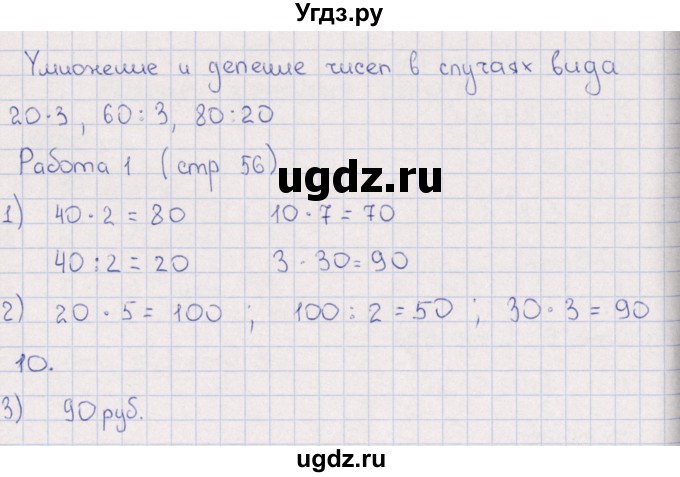 Угдз.ру
Умножение и деление чисел в случаях вида
20·3, 60:3, 80:20
Работа 1 (стр 56)
ugdz.ru
1) 40·2=80 10·7=70
40:2=20 3·30=90
2) 20·5=100; 100:2=50; 30·3=90
10.
3) 90 руб.
ugdz.ru